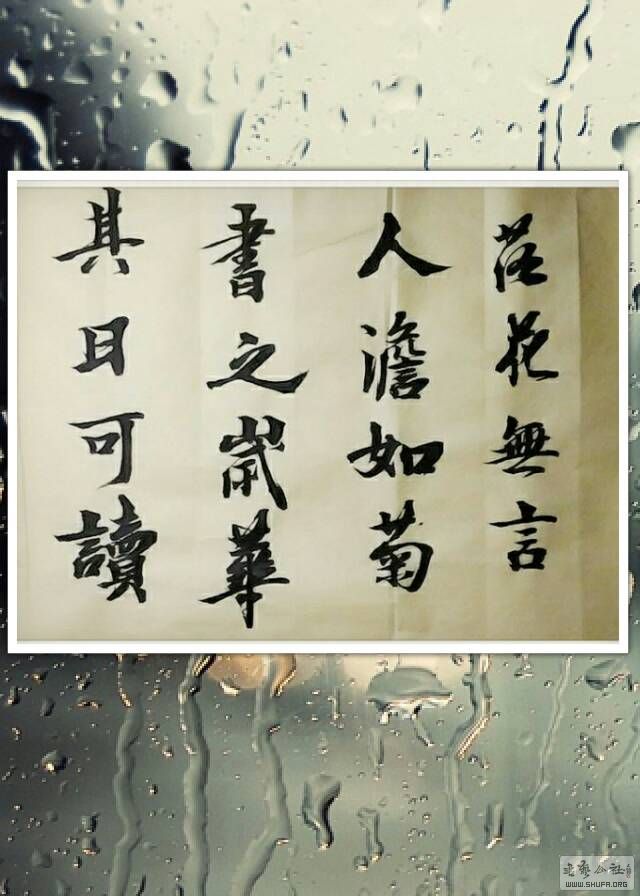 落花無言
人澹如菊
書之歲華
其日可讀
WWW.SHUFA.ORG